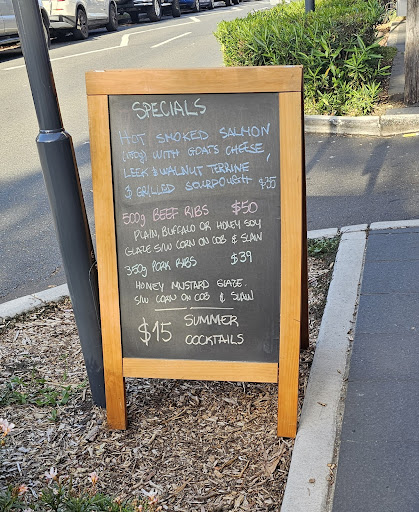 SPECIALS
HOT SMOKED SALMON
(180g) WITH GOATS CHEESE,
LEEK & WALNUT TERRINE
& GRILLED SOURDOUGH $35
500g BEEF RIBS $50
PLAIN, BUFFALO OR HONEY SOY
GLAZE S/W CORN ON COB & SLAW
350g PORK RIBS $39
HONEY MUSTARD GLAZE.
S/W CORN ON COB & SLAW
$15 SUMMER
COCKTAILS